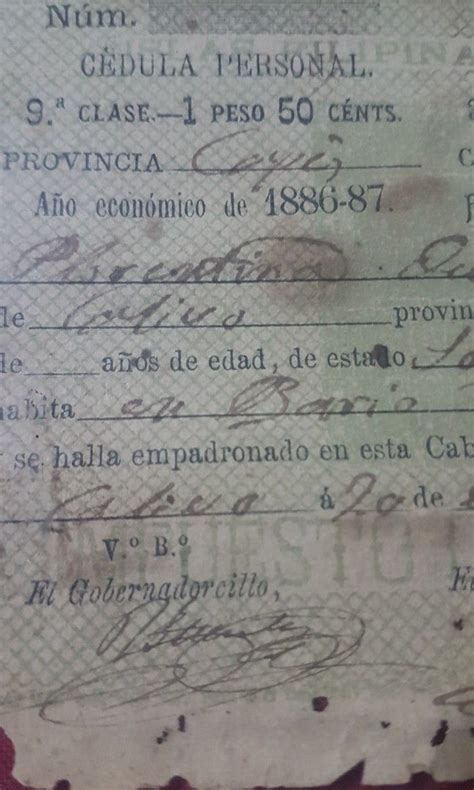 Núm.
ISLAS FILIPINA
CÉDULA PERSONAL.
9.ª CLASE.—1 PESO 50 CÉNTS.
PROVINCIA Capiz
Año económico de 1886-87.
Florentina
de Calivo provin
de años de edad, de estado So
habita en Bario
se halla empadronado en esta Cab
Calivo á 20 de
IMPUESTO
V.º B.º
El Gobernadorcillo,